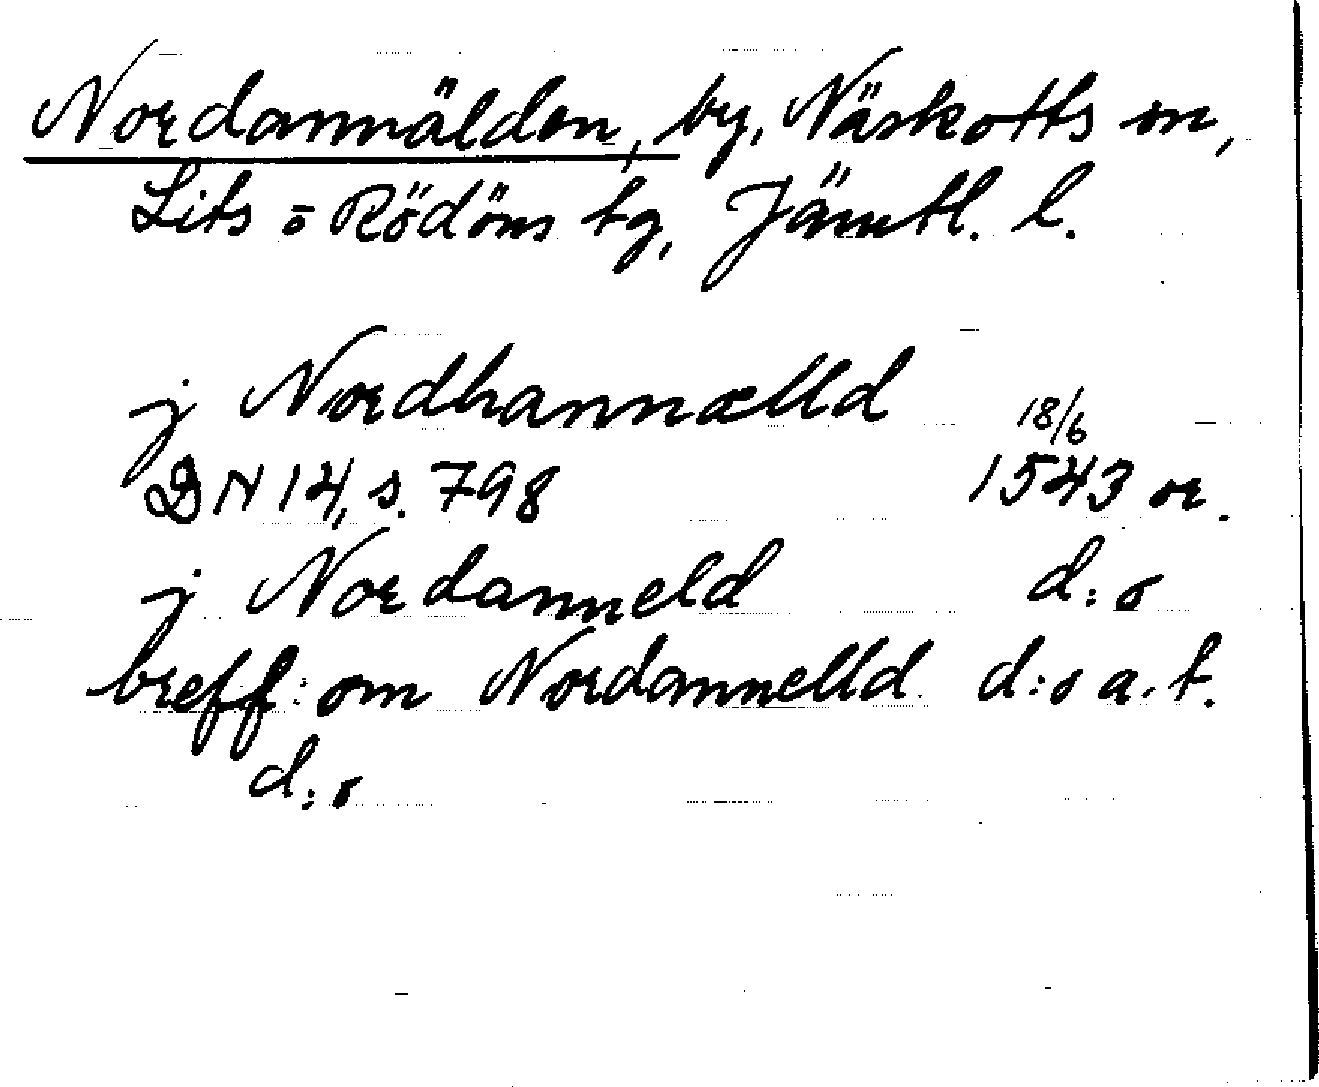 Nordannälden, by, Näskotts sn,
Lits o Rödöns tg, Jämtl. l.
j Nordhannælld 18/6
DN 14, s. 798 1543 or.
j Nordanneld d:o
breff: om Nordannelld d:o a.t.
d:o